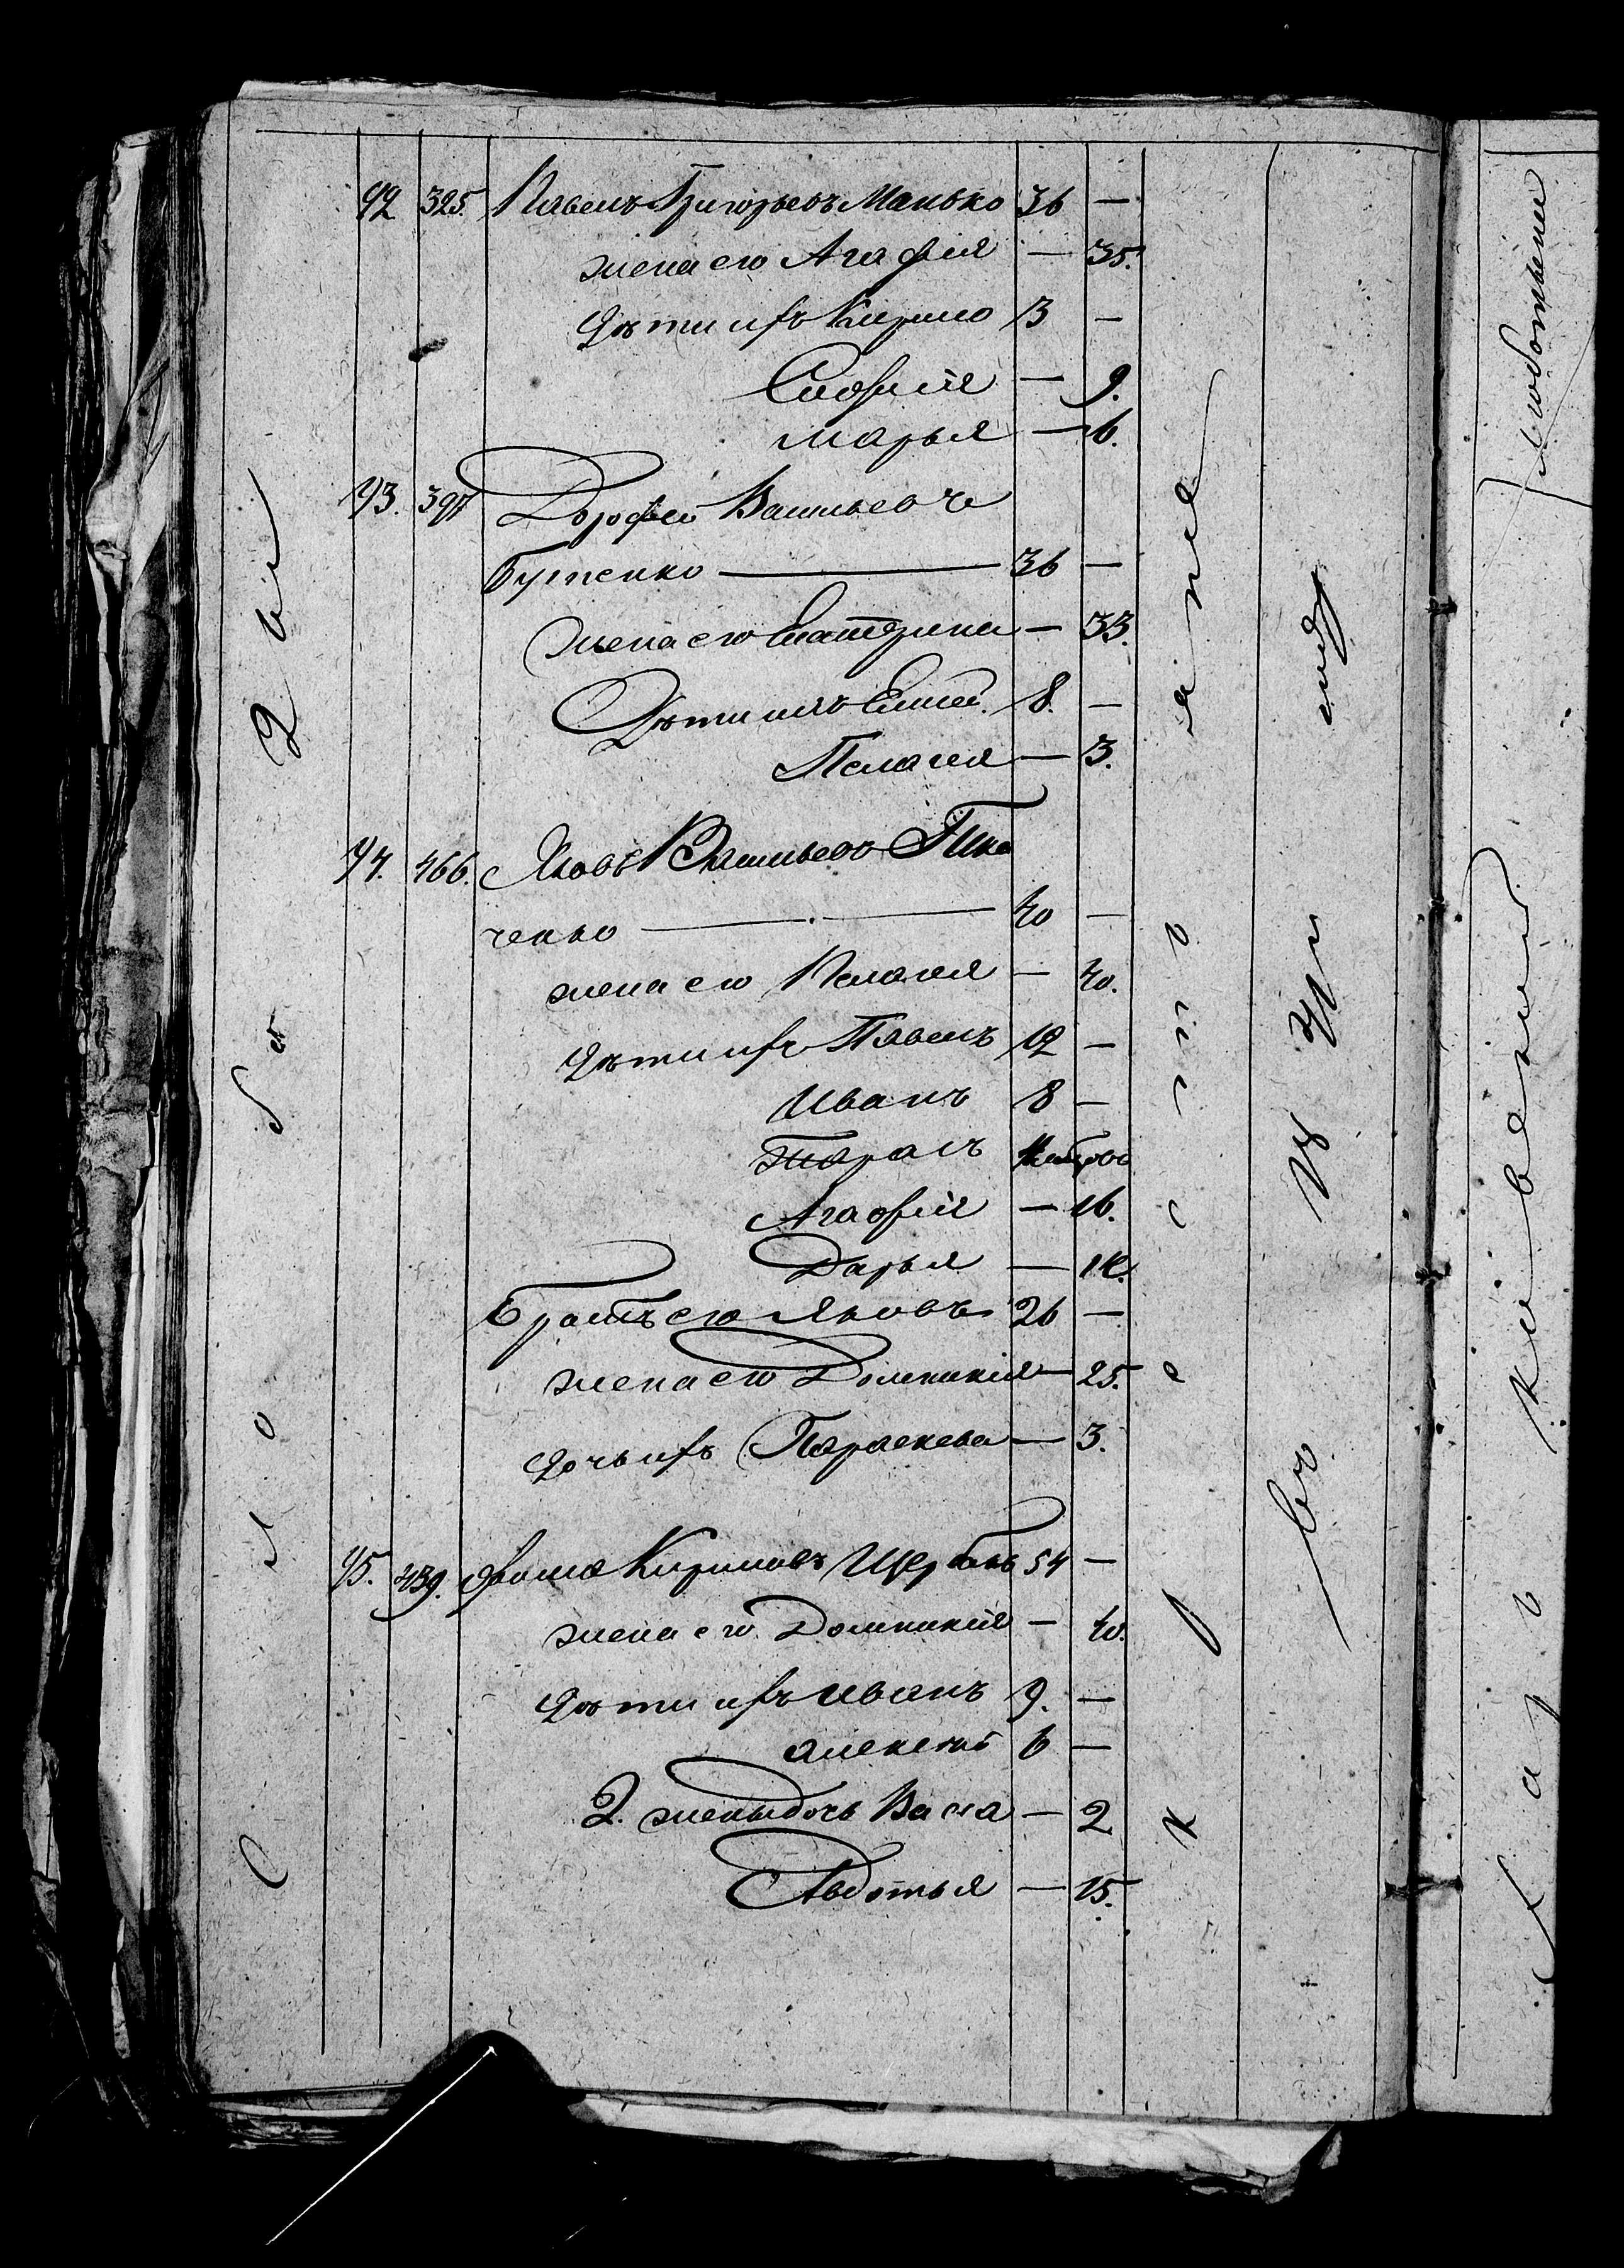 92 325. Павелъ Григорьевъ Манько 36 —
жена его Агафія — 35.
дѣти ихъ Кирило 3 —
Софія — 9.
Марья — 6.
93. 397 Дорофей Васильевъ
Бутенко — 36 —
жена его Екатерина — 33.
Дѣти ихъ Елисей 8. —
Пелагея — 3.
94. 466. Яковъ Васильевъ Тка
ченко — 40 —
жена его Пелагея — 40.
дѣти ихъ Павелъ 12 —
Иванъ 8 —
Тарасъ
Агафія — 16.
Дарья — 14.
Братъ его Яковъ 26 —
жена его Домникія — 25.
дочь ихъ Параскева — 3.
95. 439. Фома Кириловъ Щербакъ 54 —
жена его Домникія — 40.
дѣти ихъ Иванъ 9. —
Алексѣй 6 —
2. жены дочь Васса — 2
Авдотья — 15.
Сло
крестьяне
въ 1843 году
Харьковской